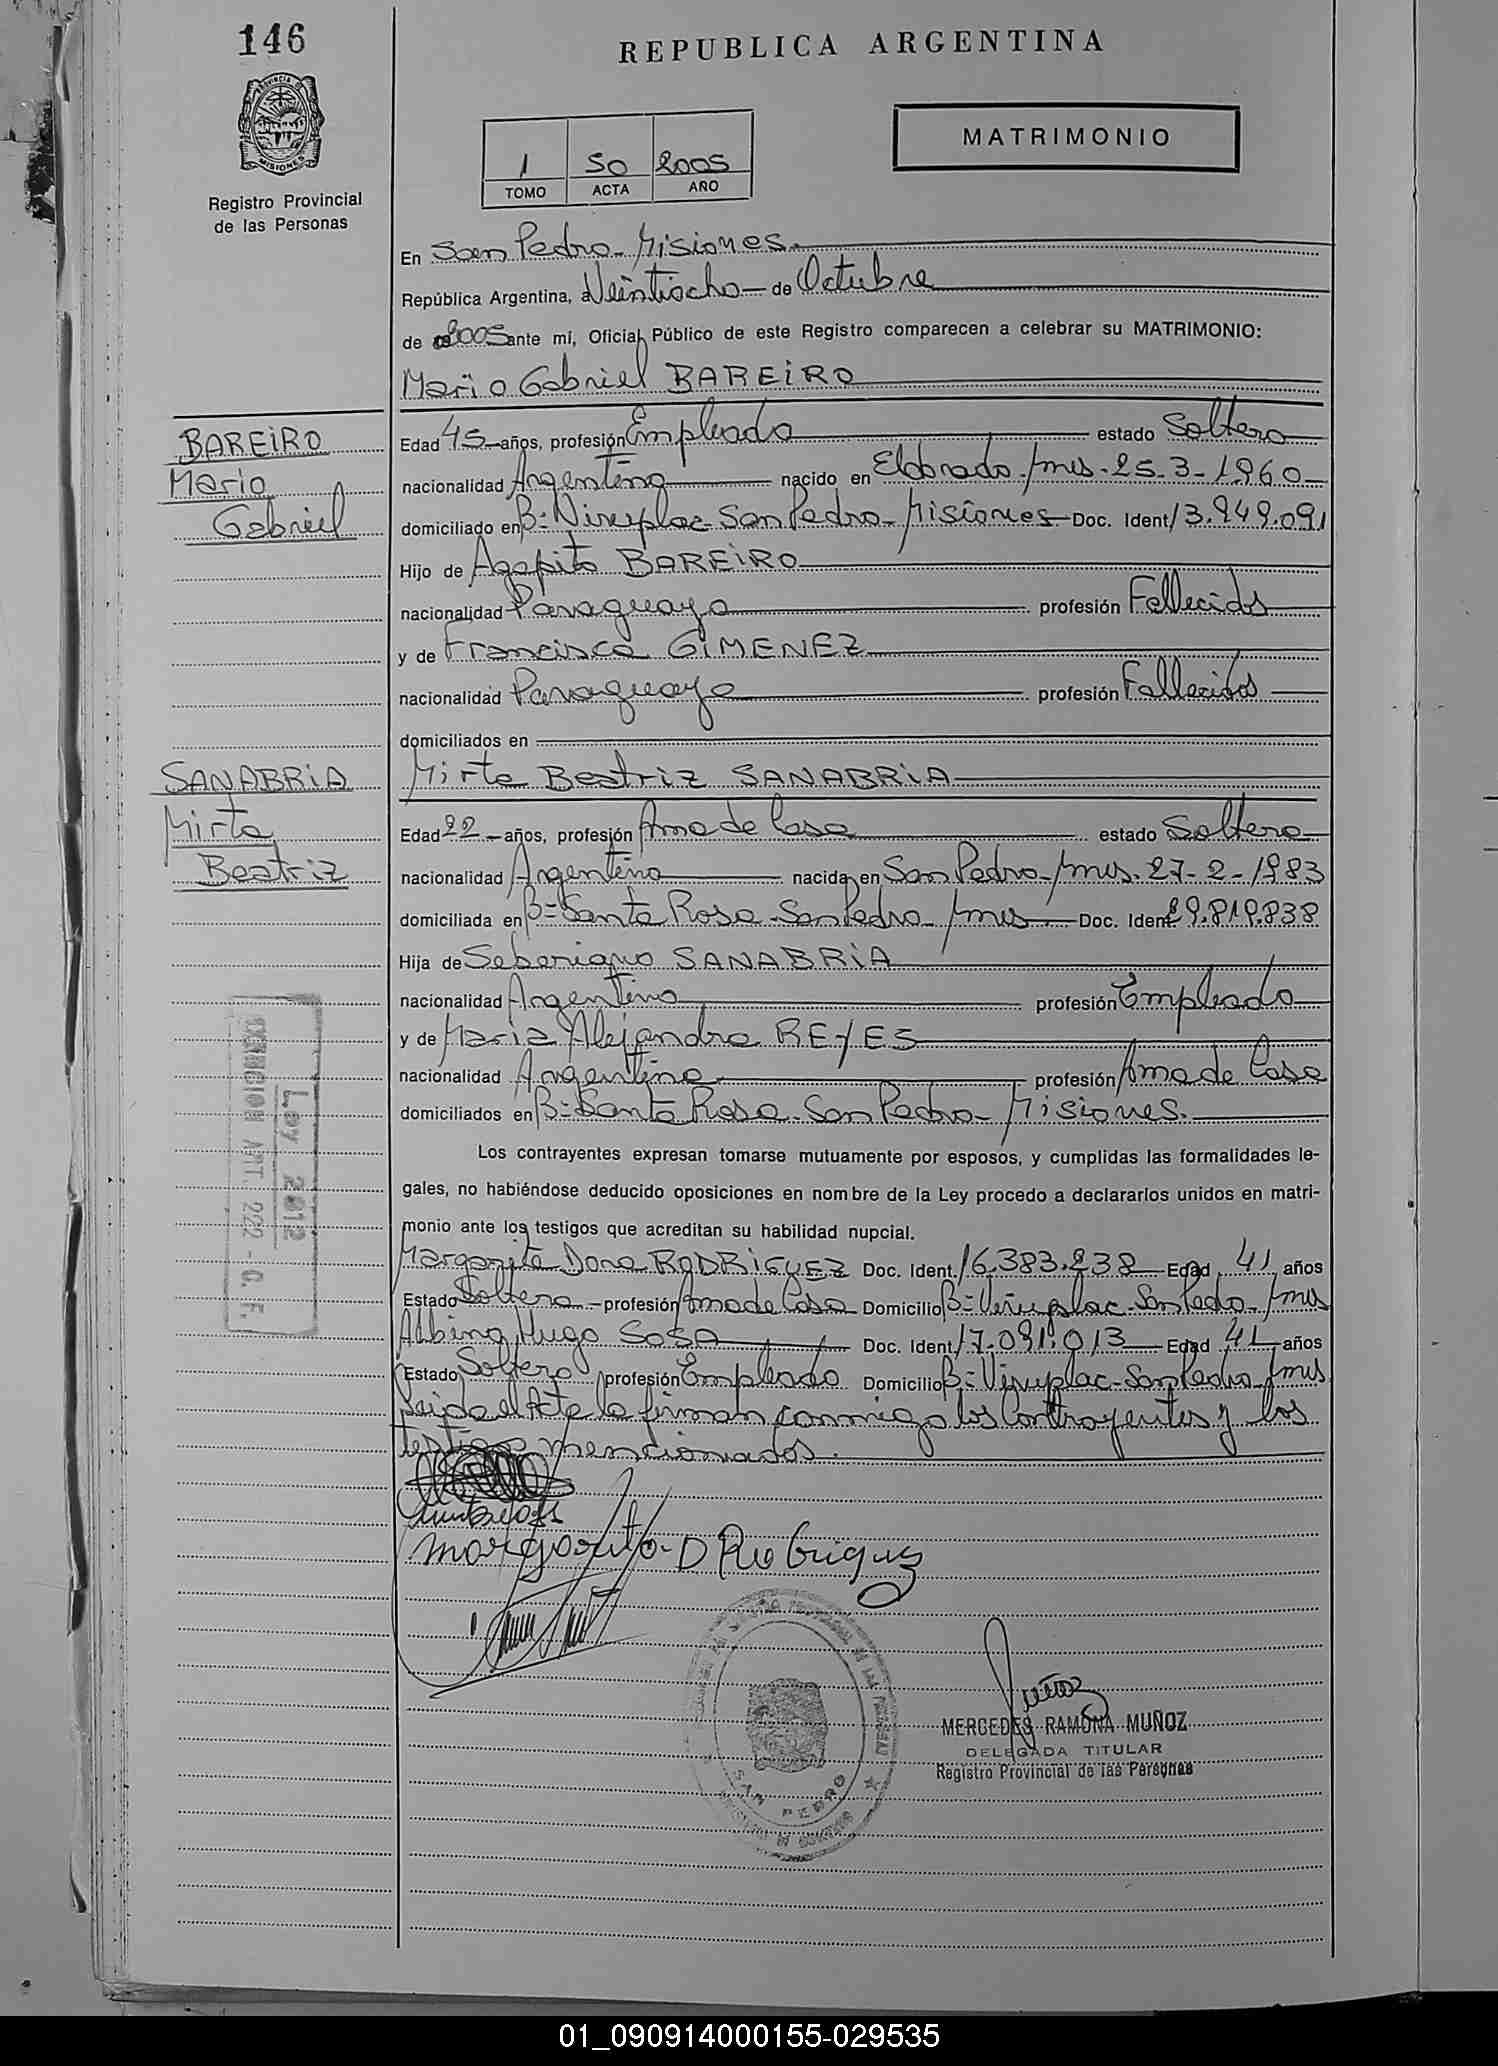 146
REPUBLICA ARGENTINA
PROVINCIA DE
MISIONES
Registro Provincial
de las Personas
MATRIMONIO
1 50 2005
TOMO ACTA AÑO
En San Pedro - Misiones.
República Argentina, a Veintiocho de Octubre
de 2005 ante mi, Oficial Público de este Registro comparecen a celebrar su MATRIMONIO:
Mario Gabriel BAREIRO
BAREIRO
Mario
Gabriel
Edad 45 años, profesión Empleado estado Soltero
nacionalidad Argentina nacido en Eldorado - Mnes - 25-3-1960
domiciliado en B= Viruplac - San Pedro - Misiones Doc. Ident 13.949.091
Hijo de Agapito BAREIRO
nacionalidad Paraguaya profesión Fallecidos
y de Francisca GIMENEZ
nacionalidad Paraguaya profesión Fallecidos
domiciliados en
SANABRIA
Mirta
Beatriz
Mirta Beatriz SANABRIA
Edad 22 años, profesión Ama de Casa estado Soltera
nacionalidad Argentina nacida en San Pedro - Mnes. 27-2-1983
domiciliada en B= Santa Rosa - San Pedro - Mnes Doc. Ident 29.819.838
Hija de SANABRIA
nacionalidad Argentina profesión Empleado
y de Maria Alejandra REYES
nacionalidad Argentina profesión Ama de Casa
domiciliados en B= Santa Rosa - San Pedro - Misiones.
Ley 2812
EXENCION ART. 222 - C. F.
Los contrayentes expresan tomarse mutuamente por esposos, y cumplidas las formalidades le-
gales, no habiéndose deducido oposiciones en nombre de la Ley procedo a declararlos unidos en matri-
monio ante los testigos que acreditan su habilidad nupcial.
Margarita Dora RODRIGUEZ Doc. Ident. 16.383.238 Edad 41 años
Estado Soltera profesión Ama de Casa Domicilio B= Viruplac - San Pedro - Mnes
Albino Hugo SOSA Doc. Ident 17.091.013 Edad 41 años
Estado Soltero profesión Empleado Domicilio B= Viruplac - San Pedro - Mnes
Leida el Acta la firman conmigo los Contrayentes y los
testigos mencionados.
Margarita D Rodriguez
SAN PEDRO
Muñoz
MERCEDES RAMONA MUÑOZ
DELEGADA TITULAR
Registro Provincial de las Personas
01_090914000155-029535